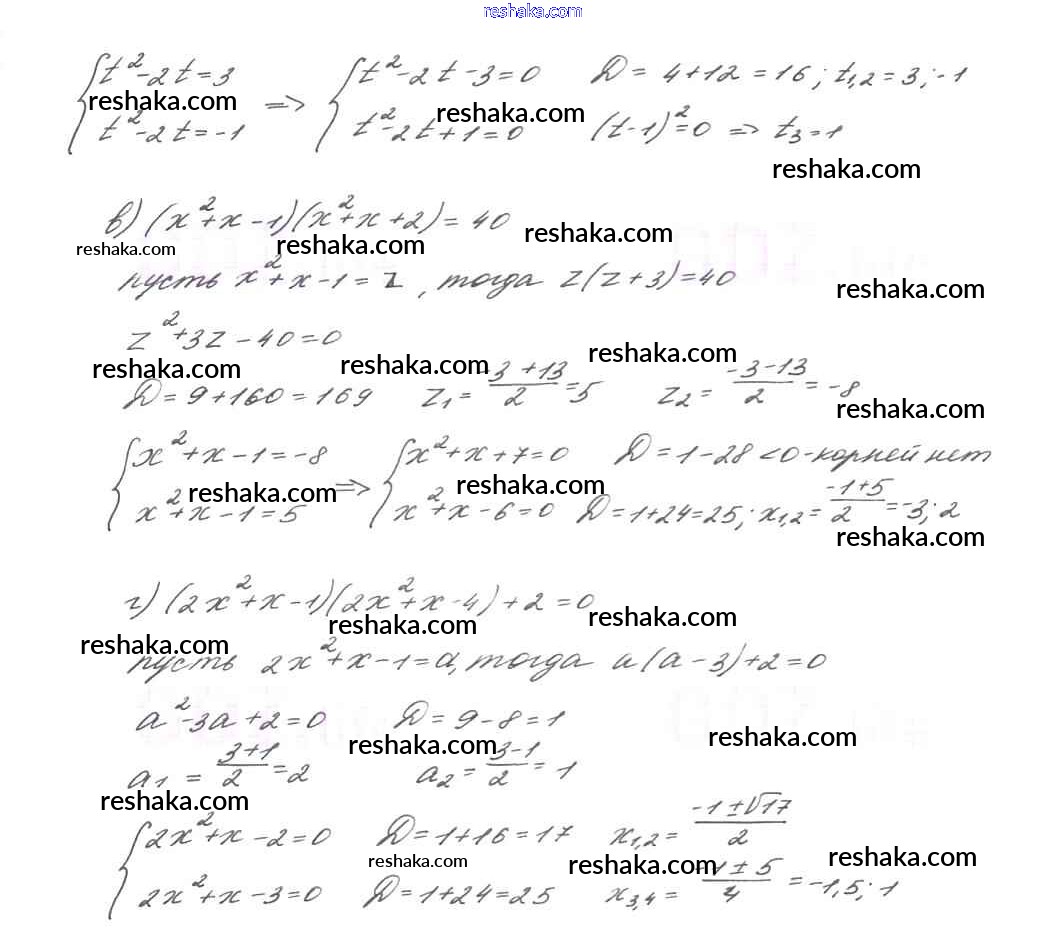 reshaka.com
t²-2t=3 t²-2t-3=0 D=4+12=16; t₁,₂=3;-1
reshaka.com => reshaka.com
t²-2t=-1 t²-2t+1=0 (t-1)²=0 => t₃=1
reshaka.com
в) (x²+x-1)(x²+x+2)=40
reshaka.com reshaka.com reshaka.com
пусть x²+x-1=z, тогда z(z+3)=40
reshaka.com
z²+3z-40=0
reshaka.com reshaka.com reshaka.com
D=9+160=169 z₁=(-3+13)/2=5 z₂=(-3-13)/2=-8
reshaka.com
x²+x-1=-8 x²+x+7=0 D=1-28<0-корней нет
reshaka.com => reshaka.com
x²+x-1=5 x²+x-6=0 D=1+24=25; x₁,₂=(-1+5)/2=-3; 2
reshaka.com
г) (2x²+x-1)(2x²+x-4)+2=0
reshaka.com reshaka.com reshaka.com
пусть 2x²+x-1=a, тогда a(a-3)+2=0
a²-3a+2=0 D=9-8=1
reshaka.com reshaka.com
a₁=(3+1)/2=2 a₂=(3-1)/2=1
reshaka.com
2x²+x-2=0 D=1+16=17 x₁,₂=(-1±√17)/2
reshaka.com reshaka.com reshaka.com
2x²+x-3=0 D=1+24=25 x₃,₄=(-1±5)/4=-1,5; 1